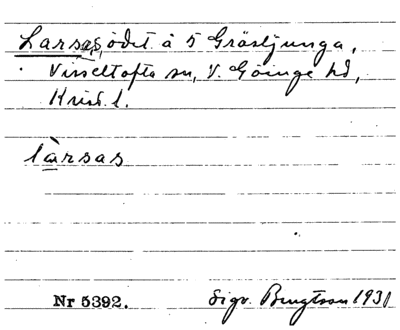 Larsas, ödet å 5 Gråsljunga,
Visseltofta sn, V. Göinge hd,
Krist. l.
làrsas
Nr 5392. Sigv. Bengtsson 1931